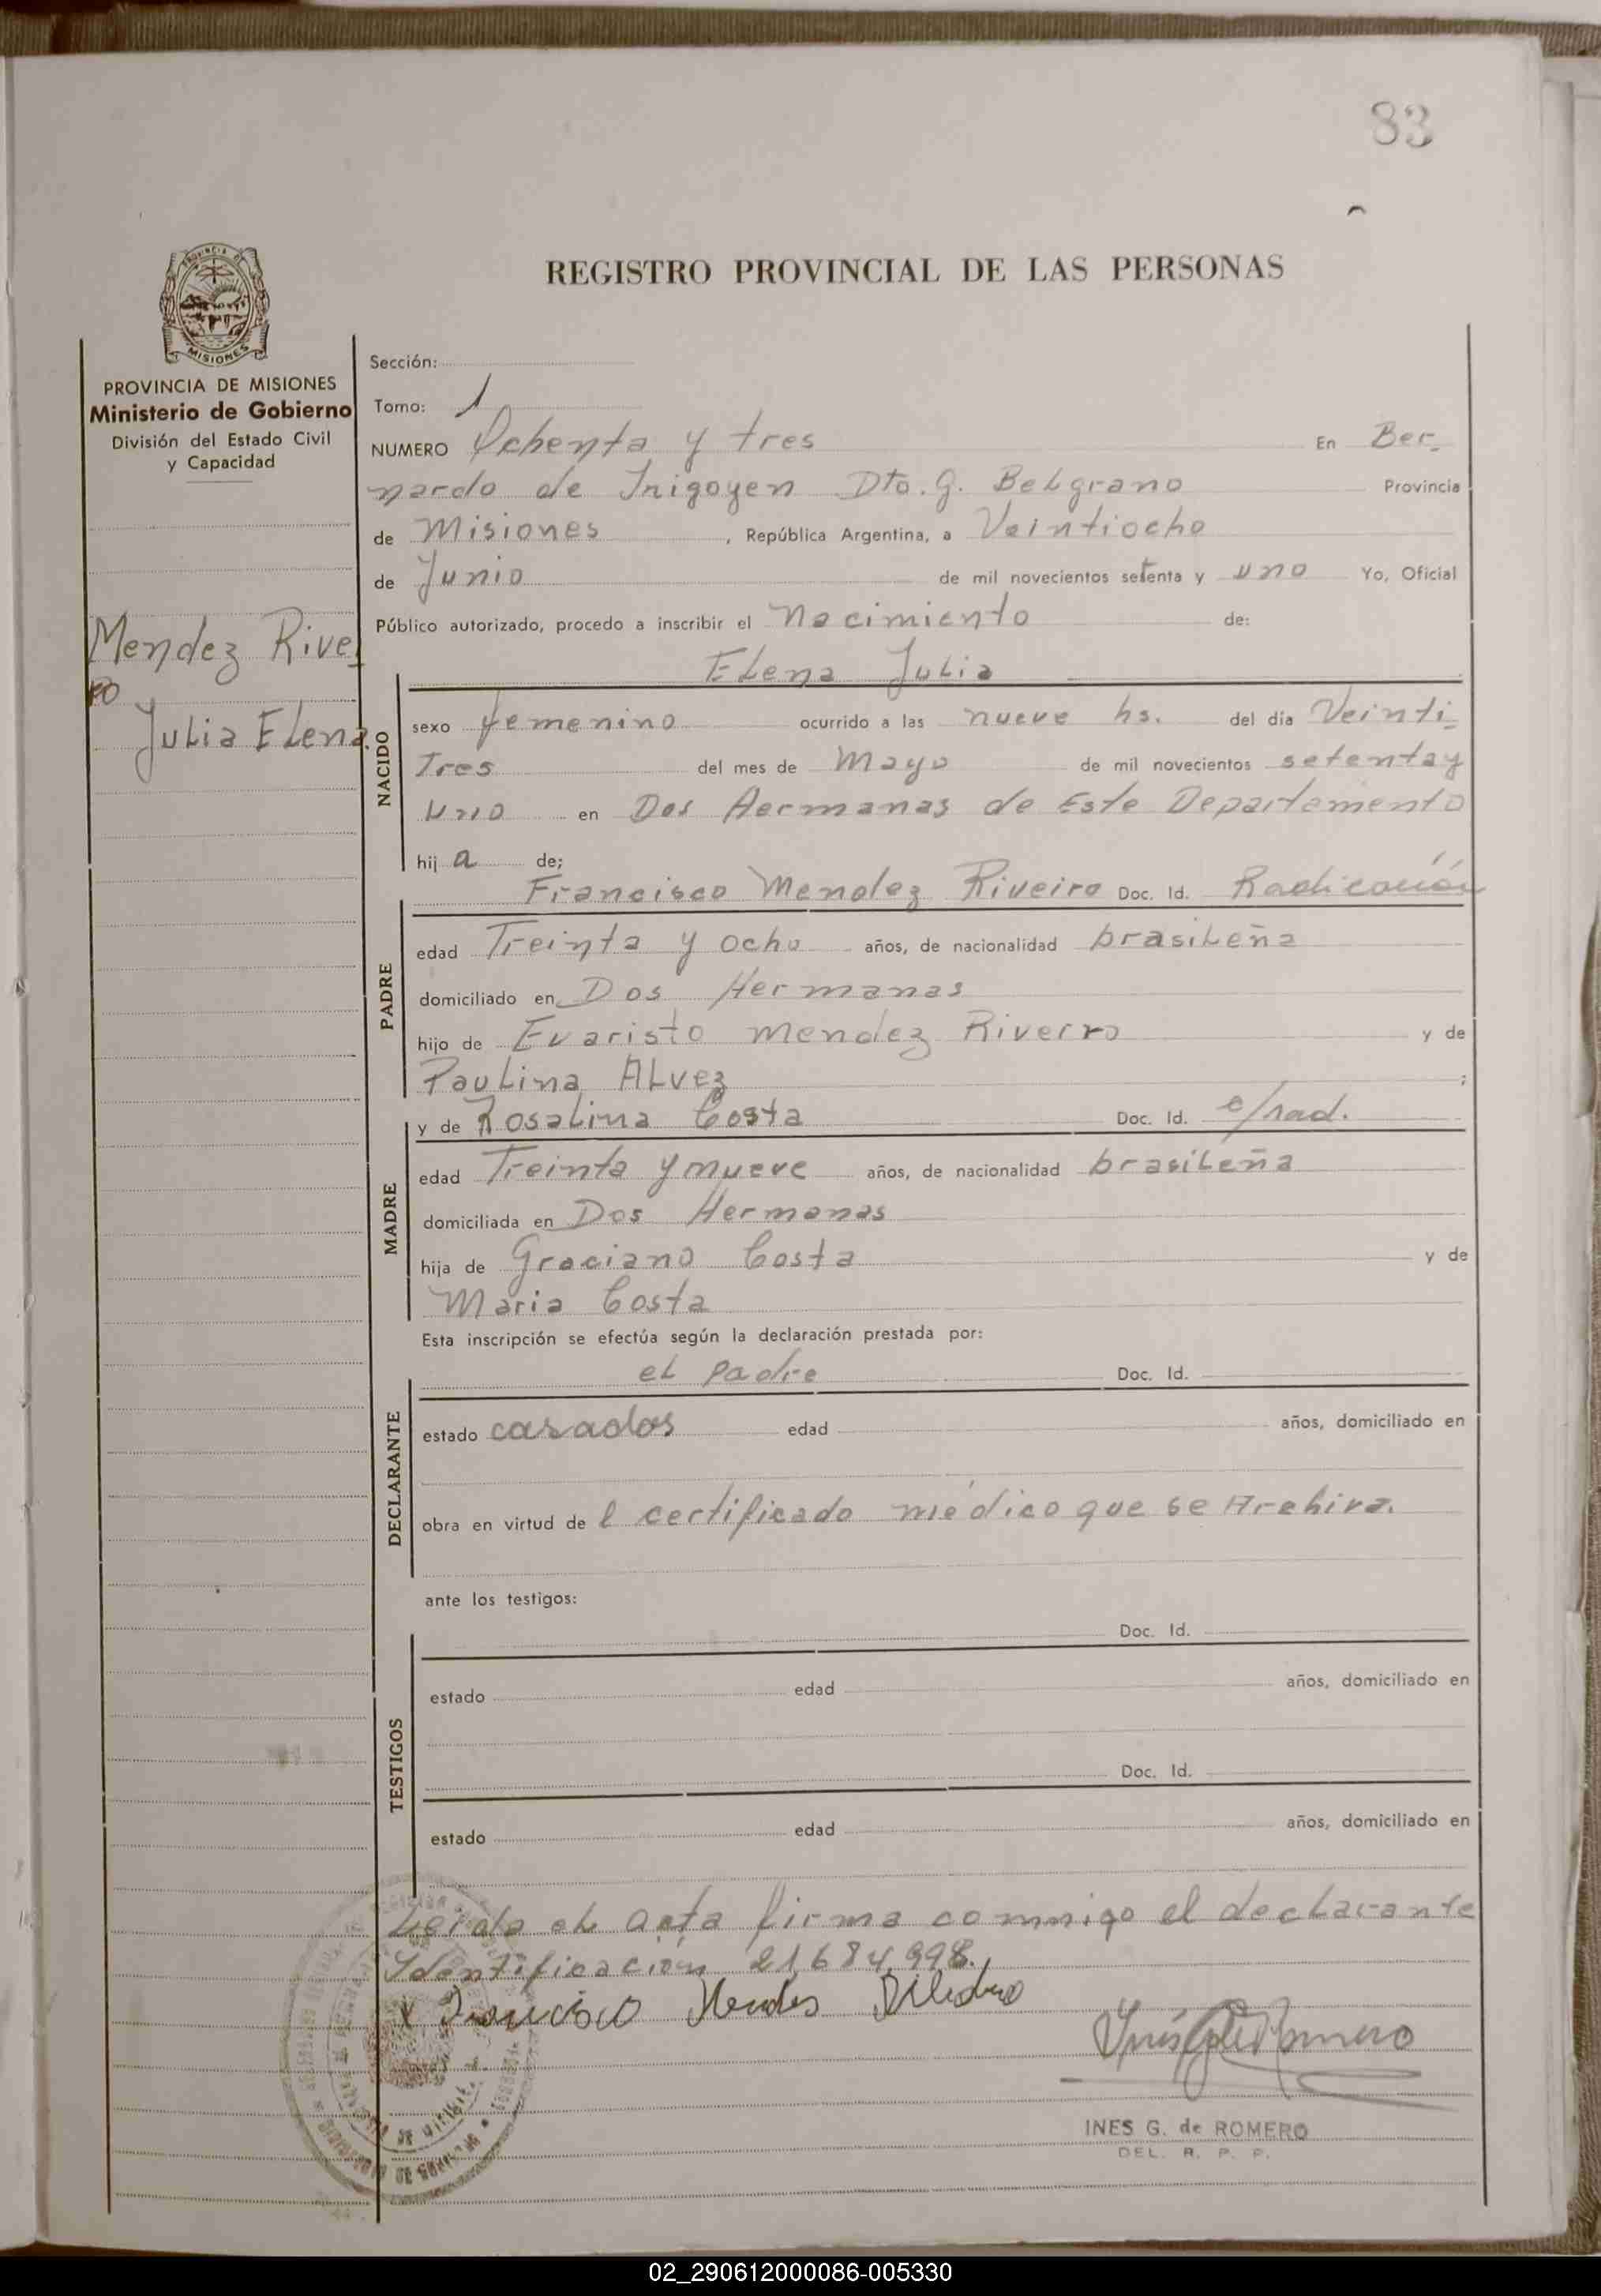 83
REGISTRO PROVINCIAL DE LAS PERSONAS
PROVINCIA DE
MISIONES
PROVINCIA DE MISIONES
Ministerio de Gobierno
División del Estado Civil
y Capacidad
Mendez Rive
ro
Julia Elena
Sección:
Tomo: 1
NUMERO Ochenta y tres En Ber_
nardo de Irigoyen Dto. G. Belgrano Provincia
de Misiones, República Argentina, a Veintiocho
de Junio de mil novecientos setenta y uno Yo, Oficial
Público autorizado, procedo a inscribir el Nacimiento de:
Elena Julia
NACIDO
sexo femenino ocurrido a las nueve hs. del día Veinti_
Tres del mes de Mayo de mil novecientos setenta y
uno en Dos Hermanas de Este Departamento
hij a de;
Francisco Mendez Riveiro Doc. Id. Radicación
PADRE
edad Treinta y ocho años, de nacionalidad brasileña
domiciliado en Dos Hermanas
hijo de Evaristo Mendez Riveiro y de
Paulina Alvez ;
y de Rosalina Costa Doc. Id. c/rad.
MADRE
edad Treinta y nueve años, de nacionalidad brasileña
domiciliada en Dos Hermanas
hija de Graciano Costa y de
Maria Costa
Esta inscripción se efectúa según la declaración prestada por:
el padre Doc. Id.
DECLARANTE
estado casados edad años, domiciliado en
obra en virtud de l certificado médico que se Archiva.
ante los testigos:
Doc. Id.
TESTIGOS
estado edad años, domiciliado en
Doc. Id.
estado edad años, domiciliado en
Leida el acta firma conmigo el declarante
Identificación 21,684,998.
x Francisco Mendes
INES G. de ROMERO
DEL. R. P. P.
02_290612000086-005330